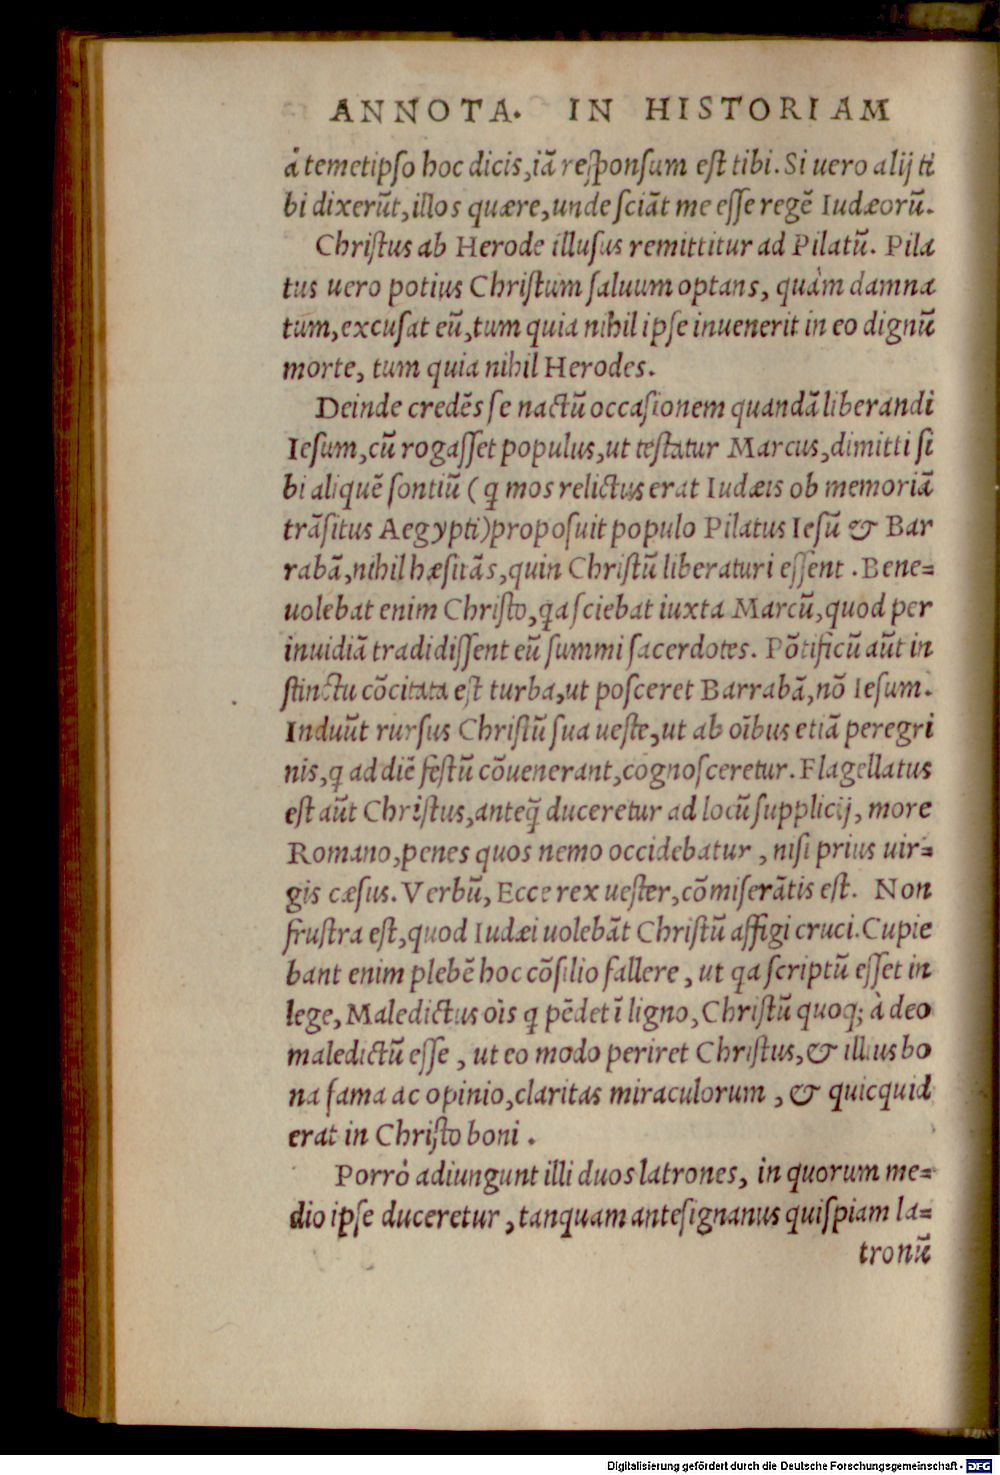 ANNOTA. IN HISTORIAM
à temetipso hoc dicis, iã responsum est tibi. Si uero alij ti
bi dixerũt, illos quære, unde sciãt me esse regẽ Iudæorũ.
Christus ab Herode illusus remittitur ad Pilatũ. Pila
tus uero potius Christum saluum optans, quàm damna
tum, excusat eũ, tum quia nihil ipse inuenerit in eo dignũ
morte, tum quia nihil Herodes.
Deinde credẽs se nactũ occasionem quandã liberandi
Iesum, cũ rogasset populus, ut testatur Marcus, dimitti si
bi aliquẽ sontiũ (q̃ mos relictus erat Iudæis ob memoriã
trãsitus Aegypti) proposuit populo Pilatus Iesũ & Bar
rabã, nihil hæsitãs, quin Christũ liberaturi essent. Bene=
uolebat enim Christo, qa sciebat iuxta Marcũ, quod per
inuidiã tradidissent eũ summi sacerdotes. Põtificũ aũt in
stinctu cõcitata est turba, ut posceret Barrabã, nõ Iesum.
Induũt rursus Christũ sua ueste, ut ab oĩbus etiã peregri
nis, q ad diẽ festũ cõuenerant, cognosceretur. Flagellatus
est aũt Christus, anteq̃ duceretur ad locũ supplicij, more
Romano, penes quos nemo occidebatur, nisi prius uir=
gis cæsus. Verbũ, Ecce rex uester, cõmiserãtis est. Non
frustra est, quod Iudæi uolebãt Christũ affigi cruci. Cupie
bant enim plebẽ hoc cõsilio fallere, ut qa scriptũ esset in
lege, Maledictus oìs q pẽdet ĩ ligno, Christũ quoq; à deo
maledictũ esse, ut eo modo periret Christus, & illius bo
na fama ac opinio, claritas miraculorum, & quicquid
erat in Christo boni.
Porrò adiungunt illi duos latrones, in quorum me=
dio ipse duceretur, tanquam antesignanus quispiam la=
tronũ
Digitalisierung gefördert durch die Deutsche Forschungsgemeinschaft - DFG